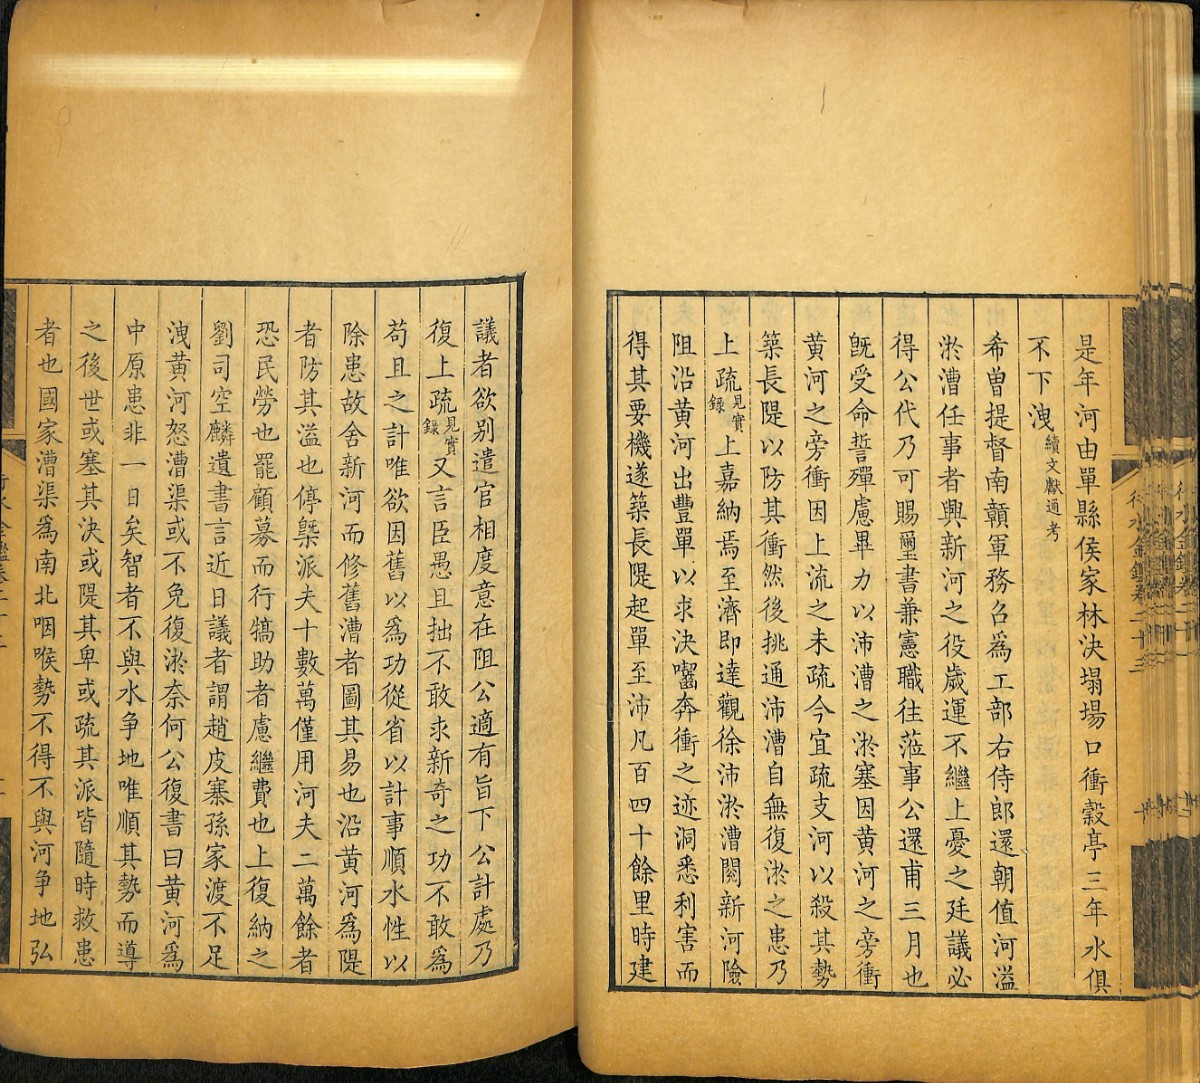 是年河由單縣侯家林決塌場口衝穀亭三年水俱
不下洩續文獻通考
希曾提督南贛軍務召爲工部右侍郎還朝值河溢
淤漕任事者興新河之役歲運不繼上憂之廷議必
得公代乃可賜璽書兼憲職往蒞事公還甫三月也
旣受命誓殫慮畢力以沛漕之淤塞因黄河之旁衝
黄河之旁衝因上流之未疏今宜疏支河以殺其勢
築長隄以防其衝然後挑通沛漕自無復淤之患乃
上疏見實錄上嘉納焉至濟即達觀徐沛淤漕閱新河險
阻沿黄河出豐單以求決囓奔衝之迹洞悉利害而
得其要機遂築長隄起單至沛凡百四十餘里時建
行水金鑑卷二十三
議者欲别遣官相度意在阻公適有旨下公計處乃
復上疏見實錄又言臣愚且拙不敢求新奇之功不敢爲
苟且之計唯欲因舊以爲功從省以計事順水性以
除患故舍新河而修舊漕者圖其易也沿黄河爲隄
者防其溢也停槩派夫十數萬僅用河夫二萬餘者
恐民勞也罷顧募而行犒助者慮繼費也上復納之
劉司空麟遺書言近日議者謂趙皮寨孫家渡不足
洩黄河怒漕渠或不免復淤奈何公復書曰黄河爲
中原患非一日矣智者不與水争地唯順其勢而導
之後世或塞其決或隄其卑或疏其派皆隨時救患
者也國家漕渠爲南北咽喉勢不得不與河争地弘